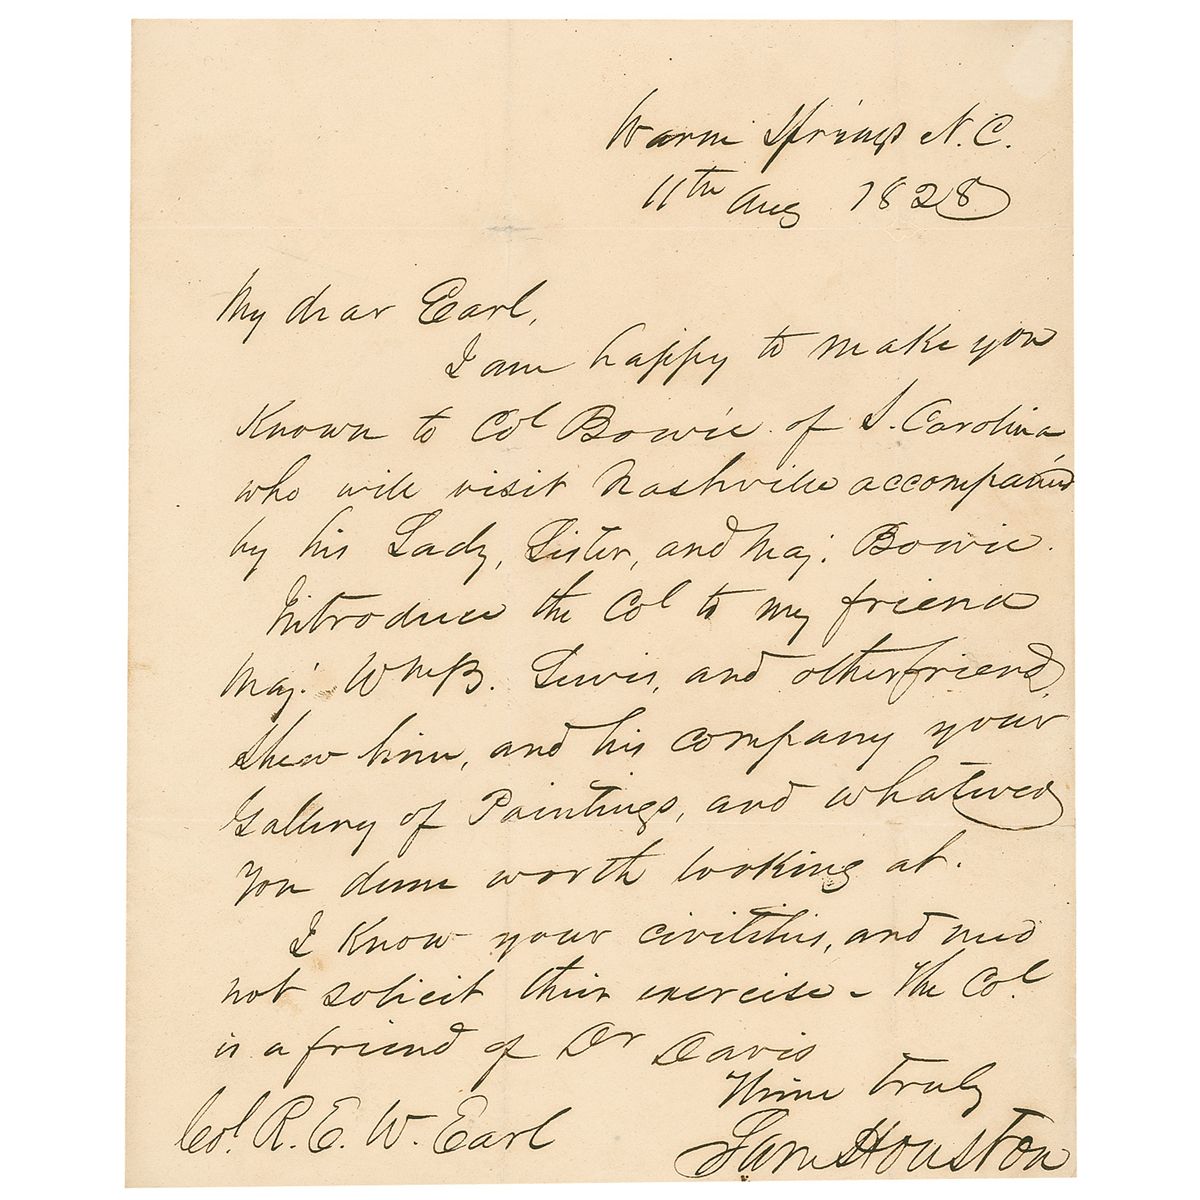 Warm Springs N.C.
11th Aug 1828
My dear Earl,
I am happy to make you
Known to Col Bowie of S. Carolina
who will visit Nashville accompanied
by his Lady, Sister, and Maj. Bowie.
Introduce the Col to my friend
Maj. Wm B. Lewis, and other friends,
shew him, and his company your
Gallery of Paintings, and whatever
You deem worth looking at.
I Know your civilities, and need
not solicit their exercise – The Col
is a friend of Dr Davis
Thine truly
Sam Houston
Col. R. E. W. Earl